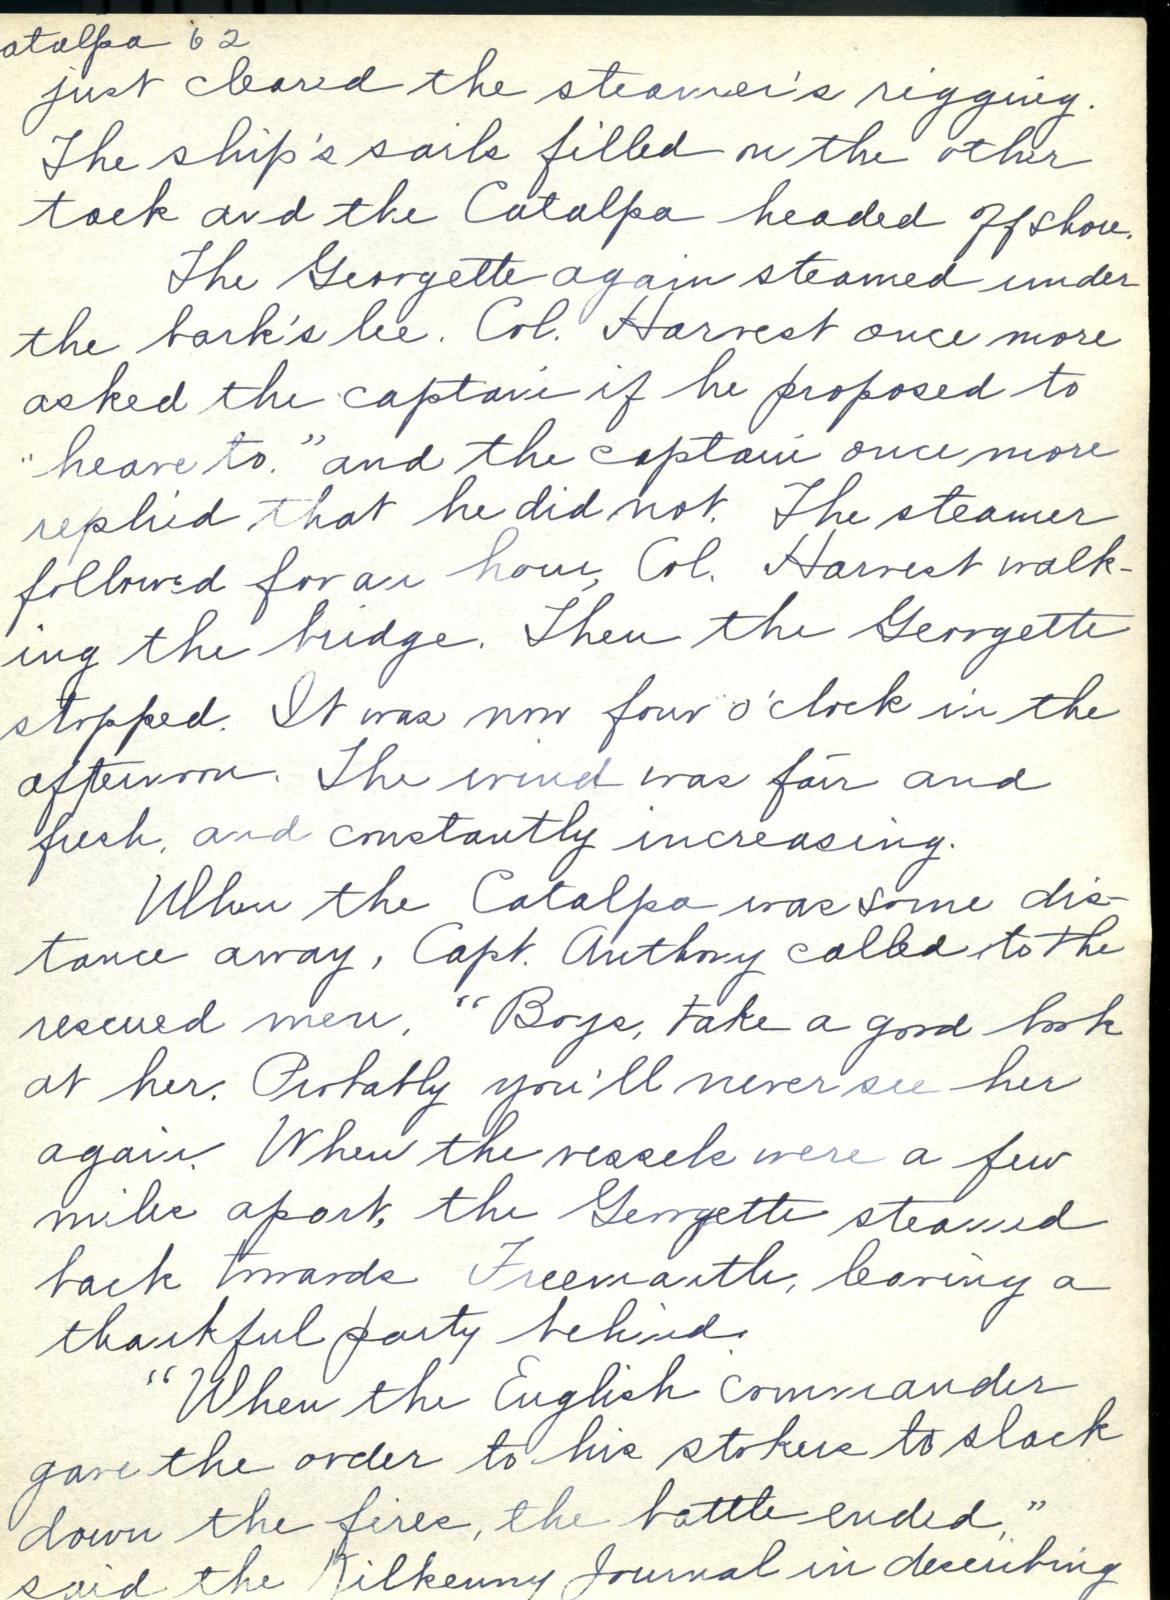 atalpa 62
just cleared the steamer's rigging.
The ship's sails filled on the other
tack and the Catalpa headed off shore.
The Georgette again steamed under
the bark's lee. Col. Harvest once more
asked the captain if he proposed to
"heave to." and the captain once more
replied that he did not. The steamer
followed for an hour, Col. Harvest walk-
ing the bridge. Then the Georgette
stopped. It was now four o'clock in the
afternoon. The wind was fair and
fresh, and constantly increasing.
When the Catalpa was some dis-
tance away, Capt. Anthony called to the
rescued men, "Boys, take a good look
at her. Probably you'll never see her
again. When the vessels were a few
miles apart, the Georgette steamed
back towards Freemantle, leaving a
thankful party behind.
"When the English commander
gave the order to his stokers to slack
down the fires, the battle ended,"
said the Kilkenny Journal in describing